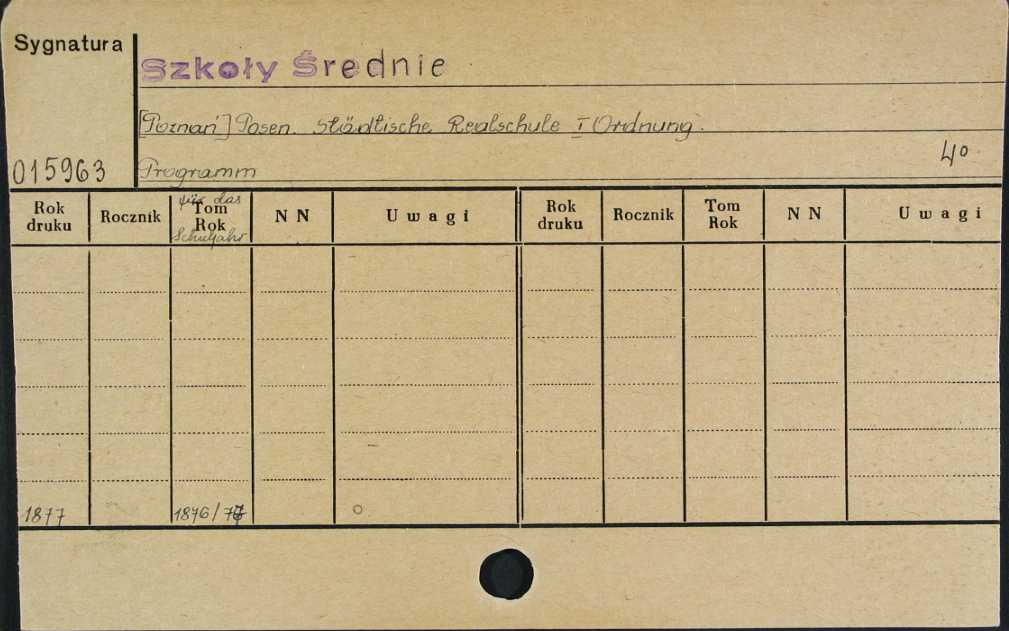 Sygnatura
Szkoły Średnie
[Poznań] Posen. Städtische Realschule I Ordnung.
4°
015963
Programm
für das
Rok druku Rocznik Tom Rok N N Uwagi Rok druku Rocznik Tom Rok N N Uwagi
Schuljahr
1877 1876/77